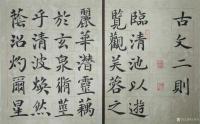 古文二則
臨清池以遊
覽觀芙蓉之
麗華潛靈藕
於玄泉脩莖
乎清波煥然
蔭沼灼爾星